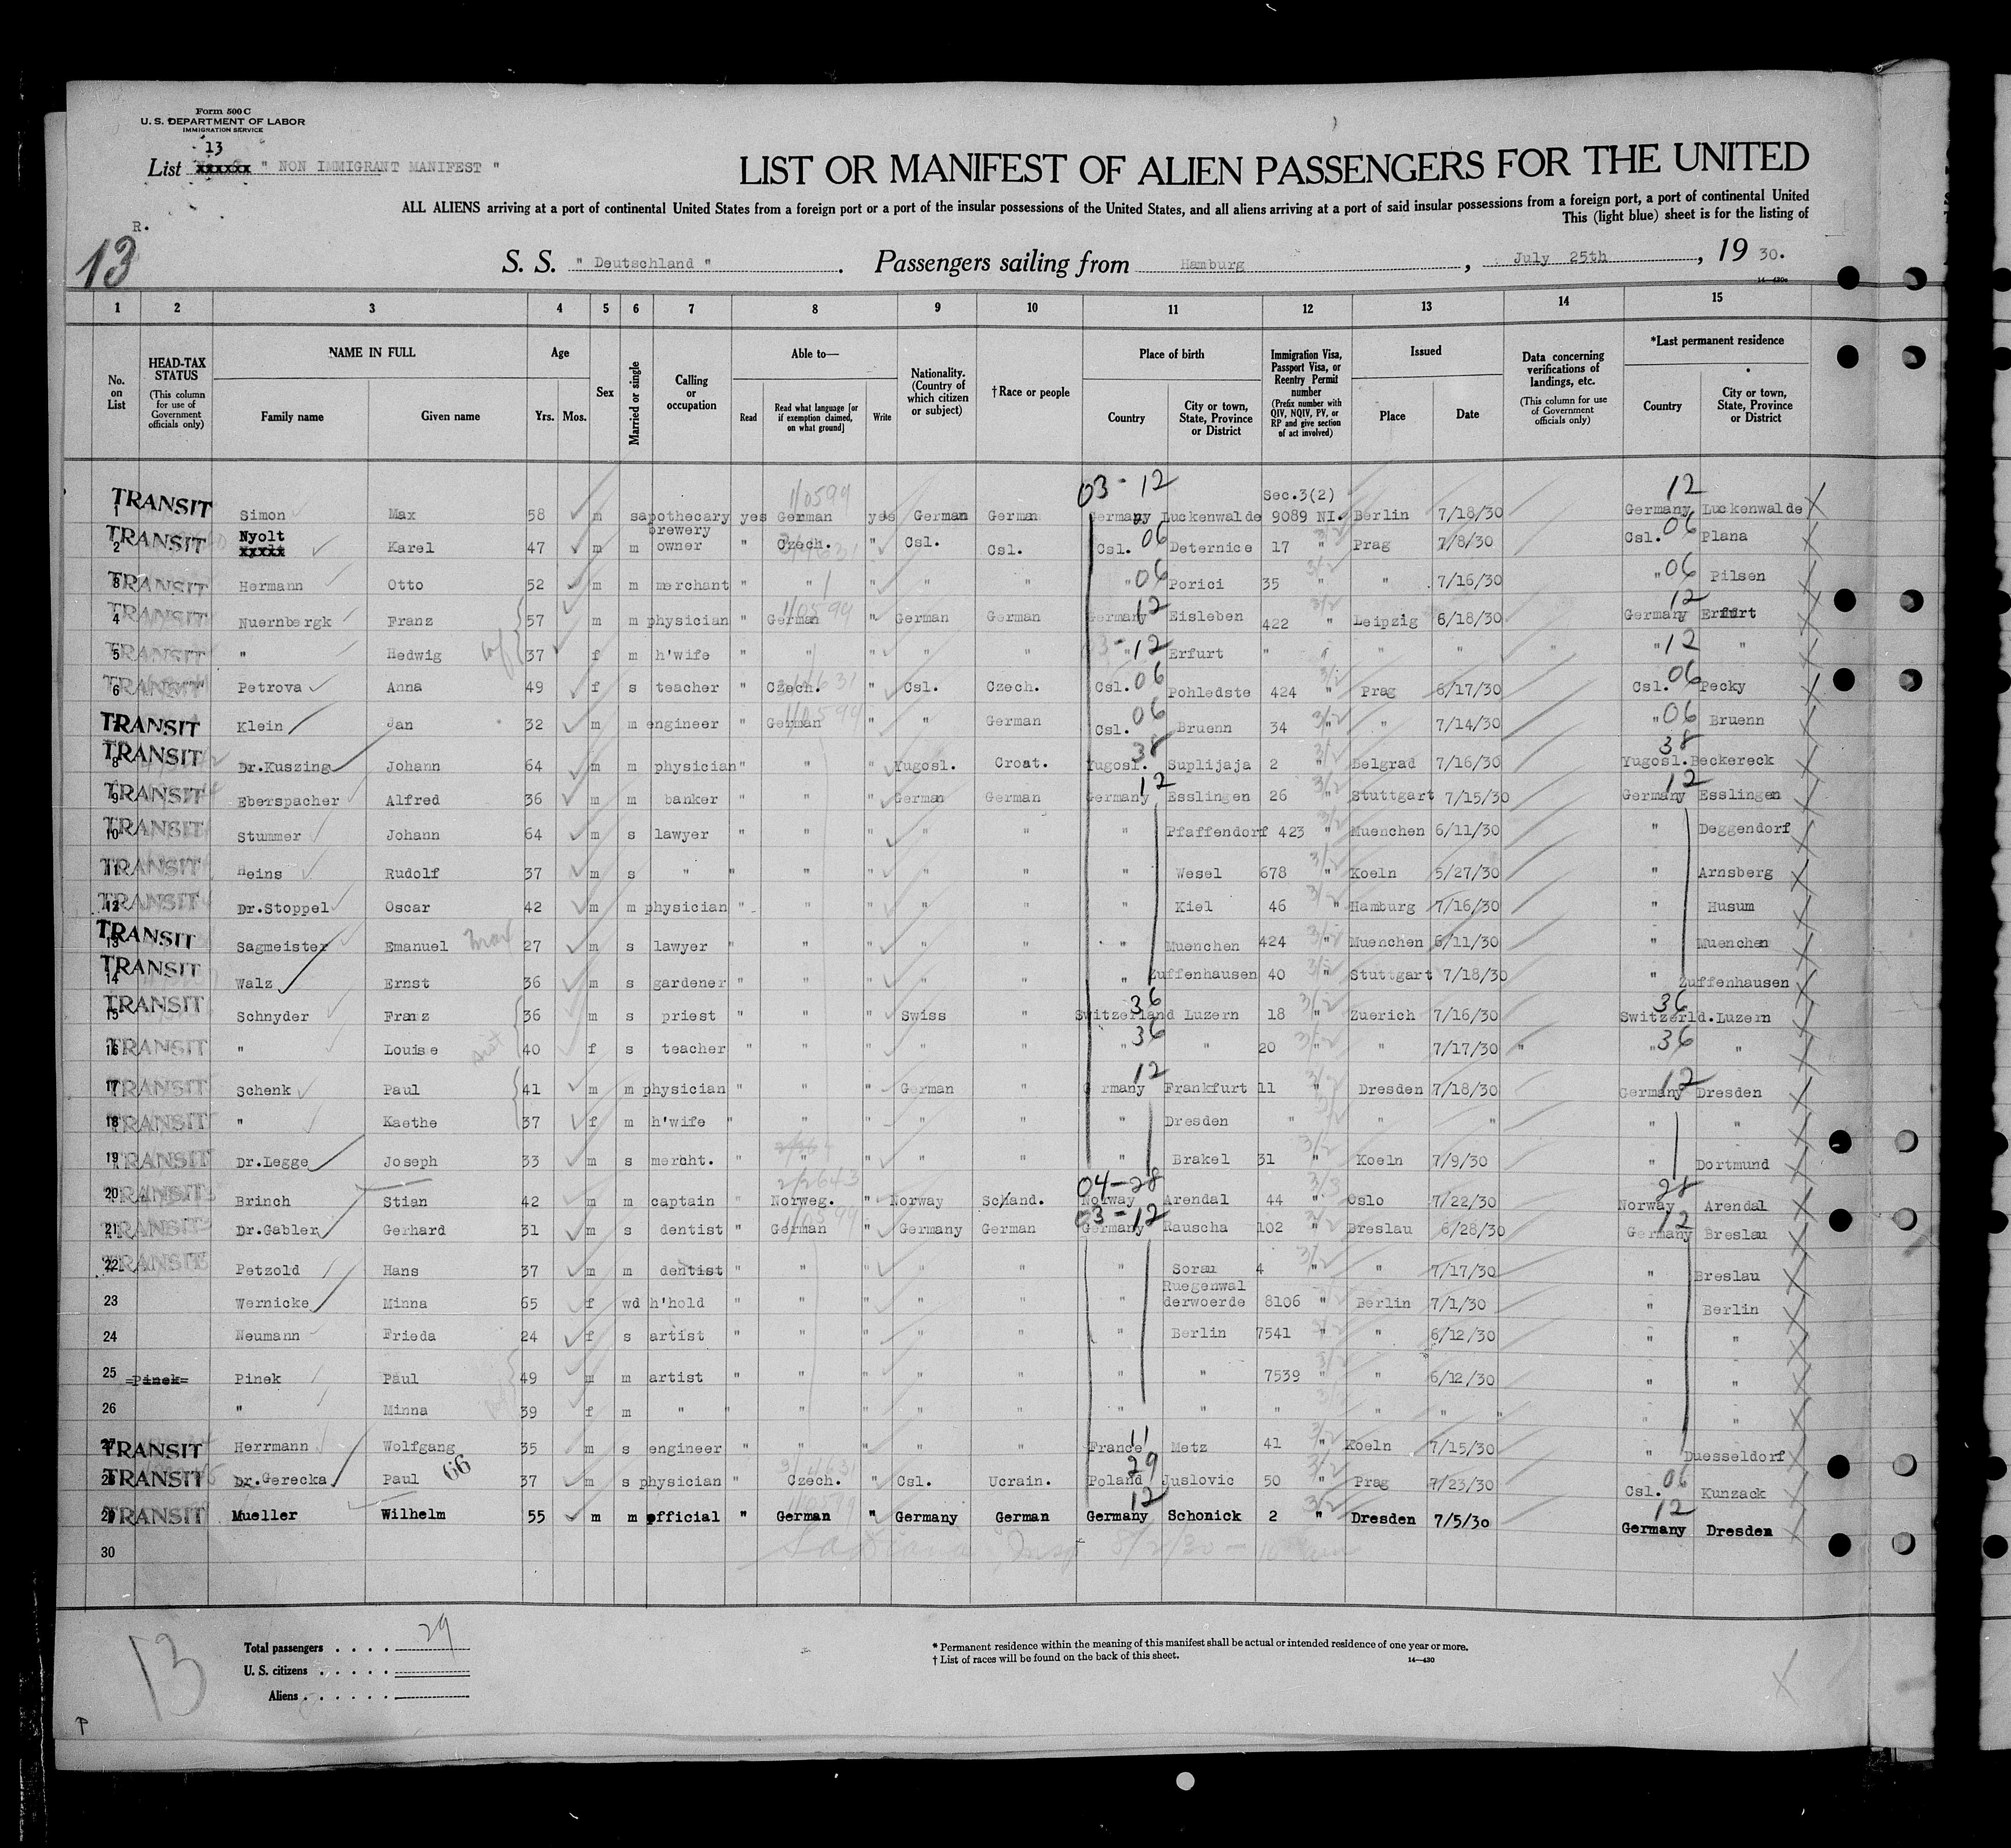 Form 500 C
U. S. DEPARTMENT OF LABOR
IMMIGRATION SERVICE
13
List xxxxxx " NON IMMIGRANT MANIFEST "
LIST OR MANIFEST OF ALIEN PASSENGERS FOR THE UNITED
ALL ALIENS arriving at a port of continental United States from a foreign port or a port of the insular possessions of the United States, and all aliens arriving at a port of said insular possessions from a foreign port, a port of continental United
This (light blue) sheet is for the listing of
R.
13
S. S. " Deutschland " . Passengers sailing from Hamburg , July 25th , 19 30.
14—430c
1 2 3 4 5 6 7 8 9 10 11 12 13 14 15
No. on List
HEAD-TAX STATUS (This column for use of Government officials only)
NAME IN FULL Family name Given name
Age Yrs. Mos.
Sex
Married or single
Calling or occupation
Able to— Read Read what language [or if exemption claimed, on what ground] Write
Nationality. (Country of which citizen or subject)
† Race or people
Place of birth Country City or town, State, Province or District
Immigration Visa, Passport Visa, or Reentry Permit number (Prefix number with QIV, NQIV, PV, or RP and give section of act involved)
Issued Place Date
Data concerning verifications of landings, etc. (This column for use of Government officials only)
*Last permanent residence Country City or town, State, Province or District
03-12 1/0599 Sec.3(2) 12
TRANSIT 1 Simon Max 58 m s apothecary yes German yes German German Germany Luckenwalde 9089 NI. Berlin 7/18/30 Germany Luckenwalde
TRANSIT 2 Nyolt xxxxx Karel 47 m m brewery owner " Czech. " Csl. Csl. Csl. 06 Deternice 17 " Prag 7/8/30 Csl. 06 Plana
TRANSIT 3 Hermann Otto 52 m m merchant " " " " " " 06 Porici 35 " " 7/16/30 " 06 Pilsen
TRANSIT 4 Nuernbergk Franz 57 m m physician " German " German German Germany 12 Eisleben 422 " Leipzig 6/18/30 Germany 12 Erfurt
TRANSIT 5 " Hedwig wf 37 f m h'wife " " " " " " 12 Erfurt " " " " " " 12 "
TRANSIT 6 Petrova Anna 49 f s teacher " Czech. " Csl. Czech. Csl. 06 Pohledste 424 " Prag 6/17/30 Csl. 06 Pecky
TRANSIT Klein Jan 32 m m engineer " German " " German Csl. 06 Bruenn 34 " " 7/14/30 " 06 Bruenn
TRANSIT 8 Dr.Kuszing Johann 64 m m physician " " " Yugosl. Croat. Yugosl. 38 Suplijaja 2 " Belgrad 7/16/30 Yugosl. 38 Beckereck
TRANSIT 9 Eberspacher Alfred 36 m m banker " " " German German Germany 12 Esslingen 26 " Stuttgart 7/15/30 Germany 12 Esslingen
TRANSIT 10 Stummer Johann 64 m s lawyer " " " " " " Pfaffendorf 423 " Muenchen 6/11/30 " Deggendorf
TRANSIT 11 Heins Rudolf 37 m s " " " " " " " Wesel 678 " Koeln 5/27/30 " Arnsberg
TRANSIT 12 Dr.Stoppel Oscar 42 m m physician " " " " " " Kiel 46 " Hamburg 7/16/30 " Husum
TRANSIT 13 Sagmeister Emanuel Max 27 m s lawyer " " " " " " Muenchen 424 " Muenchen 6/11/30 " Muenchen
TRANSIT 14 Walz Ernst 36 m s gardener " " " " " " Zuffenhausen 40 " Stuttgart 7/18/30 " Zuffenhausen
TRANSIT 15 Schnyder Franz 36 m s priest " " " Swiss " Switzerland 36 Luzern 18 " Zuerich 7/16/30 Switzerld. 36 Luzern
TRANSIT 16 " Louise 40 f s teacher " " " " " " 36 " 20 " " 7/17/30 " " 36 "
TRANSIT 17 Schenk Paul 41 m m physician " " " German " Germany 12 Frankfurt 11 " Dresden 7/18/30 Germany 12 Dresden
TRANSIT 18 " Kaethe 37 f m h'wife " " " " " " Dresden " " " " "
TRANSIT 19 Dr.Legge Joseph 33 m s mercht. " " " " " " Brakel 31 " Koeln 7/9/30 " Dortmund
TRANSIT 20 Brinch Stian 42 m m captain " Norweg. 2/2643 " Norway Schand. Norway 04-28 Arendal 44 " Oslo 7/22/30 Norway 28 Arendal
TRANSIT 21 Dr.Gabler Gerhard 31 m s dentist " German " Germany German Germany 03-12 Rauscha 102 " Breslau 6/28/30 Germany 12 Breslau
TRANSIT 22 Petzold Hans 37 m m dentist " " " " " " Sorau 4 " " 7/17/30 " Breslau
23 Wernicke Minna 65 f wd h'hold " " " " " " Ruegenwal derwoerde 8106 " Berlin 7/1/30 " Berlin
24 Neumann Frieda 24 f s artist " " " " " " Berlin 7541 " " 6/12/30 " "
25 =Pinek= Pinek Paul 49 m m artist " " " " " " " 7539 " " 6/12/30 " "
26 " Minna 39 f m " " " " " " " " " " " " " "
TRANSIT 27 Herrmann Wolfgang 35 m s engineer " " " " " France 11 Metz 41 " Koeln 7/15/30 " Duesseldorf
TRANSIT 28 Dr.Gerecka Paul 66 37 m s physician " Czech. " Csl. Ucrain. Poland 29 Juslovic 50 " Prag 7/23/30 Csl. 06 Kunzack
TRANSIT 29 Mueller Wilhelm 55 m m official " German " Germany German Germany 12 Schonick 2 " Dresden 7/5/30 Germany 12 Dresden
30
13
Total passengers . . . . 29
U. S. citizens . . . . .
Aliens . . . . . .
* Permanent residence within the meaning of this manifest shall be actual or intended residence of one year or more.
† List of races will be found on the back of this sheet. 14—430